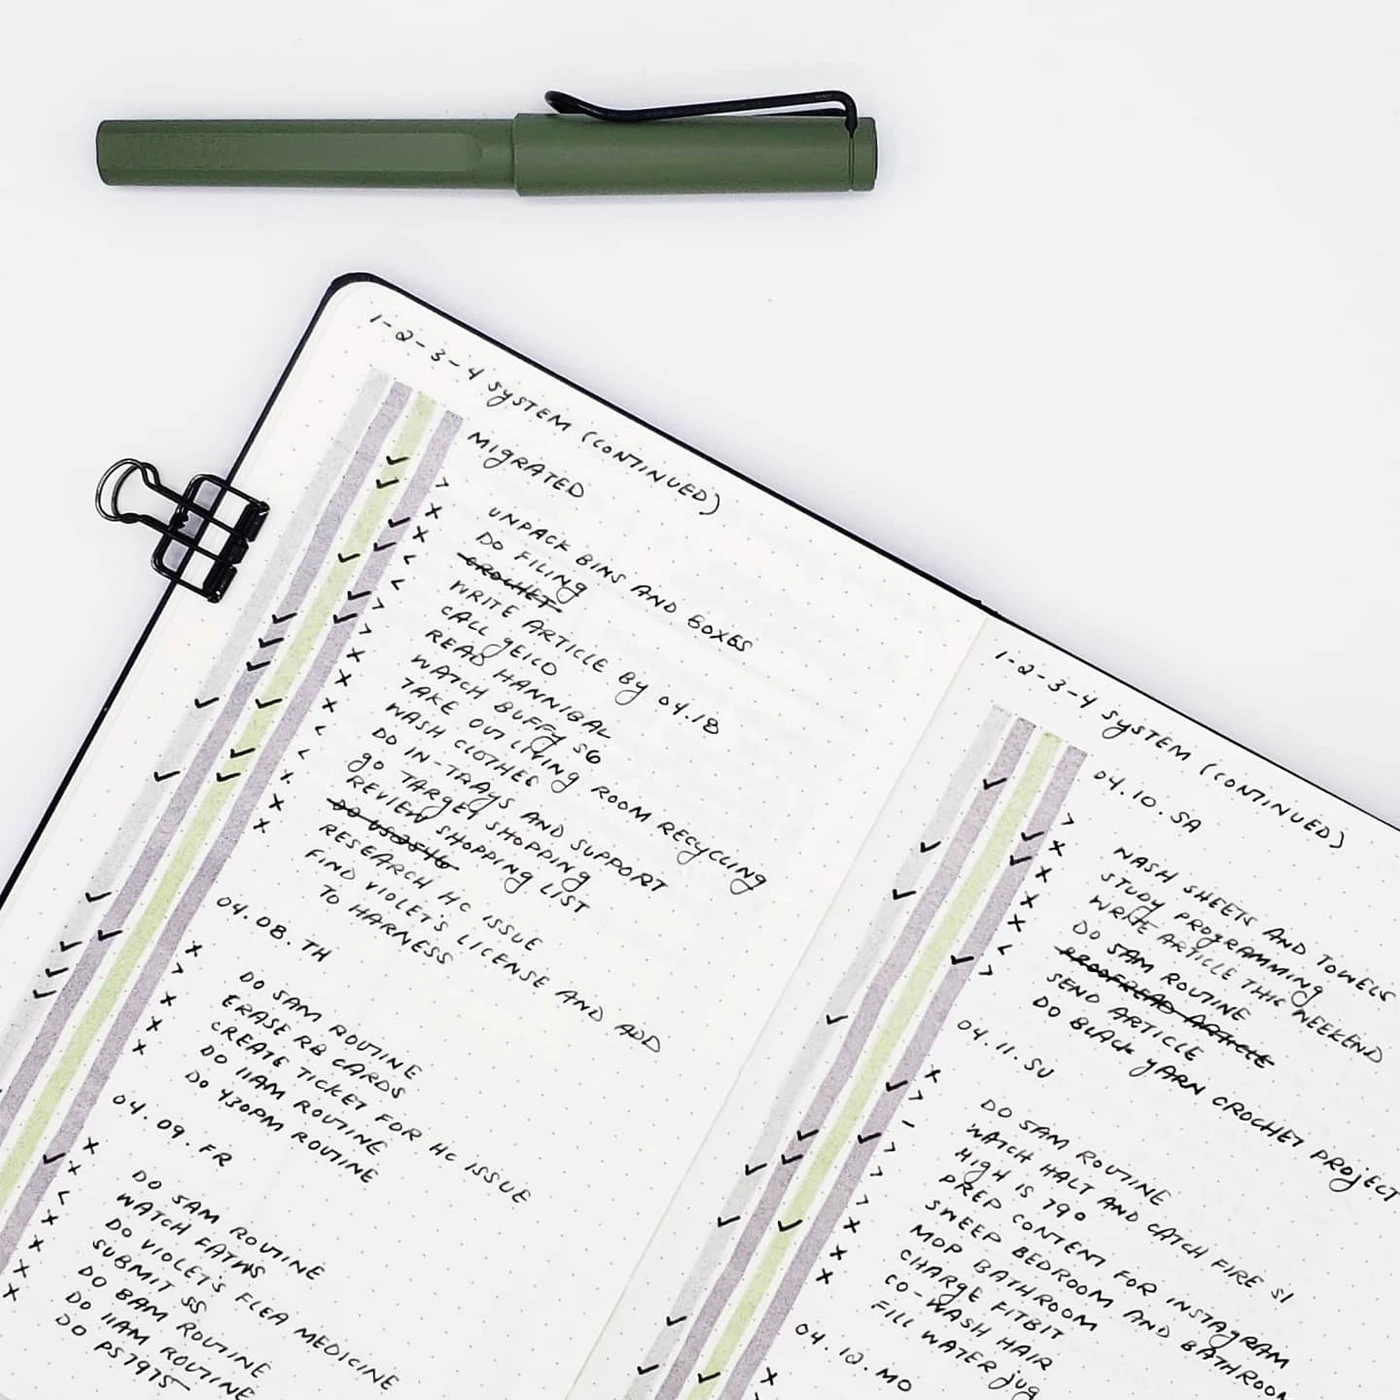 1-2-3-4 SYSTEM (CONTINUED)
MIGRATED
UNPACK BINS AND BOXES
DO FILING
CROCHET
WRITE ARTICLE BY 04.18
CALL GEICO
READ HANNIBAL
WATCH BUFFY S6
TAKE OUT LIVING ROOM RECYCLING
WASH CLOTHES
DO IN-TRAYS AND SUPPORT
GO TARGET SHOPPING
REVIEW SHOPPING LIST
DO
RESEARCH HC ISSUE
FIND VIOLET'S LICENSE AND ADD
TO HARNESS
04.08.TH
DO 5AM ROUTINE
ERASE RB CARDS
CREATE TICKET FOR HC ISSUE
DO 11AM ROUTINE
DO 430PM ROUTINE
04.09.FR
DO 5AM ROUTINE
WATCH FATWS
DO VIOLET'S FLEA MEDICINE
SUBMIT SS
DO 8AM ROUTINE
DO 11AM ROUTINE
DO PS7975
1-2-3-4 SYSTEM (CONTINUED)
04.10.SA
WASH SHEETS AND TOWELS
STUDY PROGRAMMING
WRITE ARTICLE THIS WEEKEND
DO 5AM ROUTINE
PROOFREAD ARTICLE
SEND ARTICLE
DO BLACK YARN CROCHET PROJECT
04.11.SU
DO 5AM ROUTINE
WATCH HALT AND CATCH FIRE S1
HIGH IS 79°
PREP CONTENT FOR INSTAGRAM
SWEEP BEDROOM AND BATHROOM
MOP BATHROOM
CHARGE FITBIT
CO-WASH HAIR
FILL WATER JUG
04.12.MO